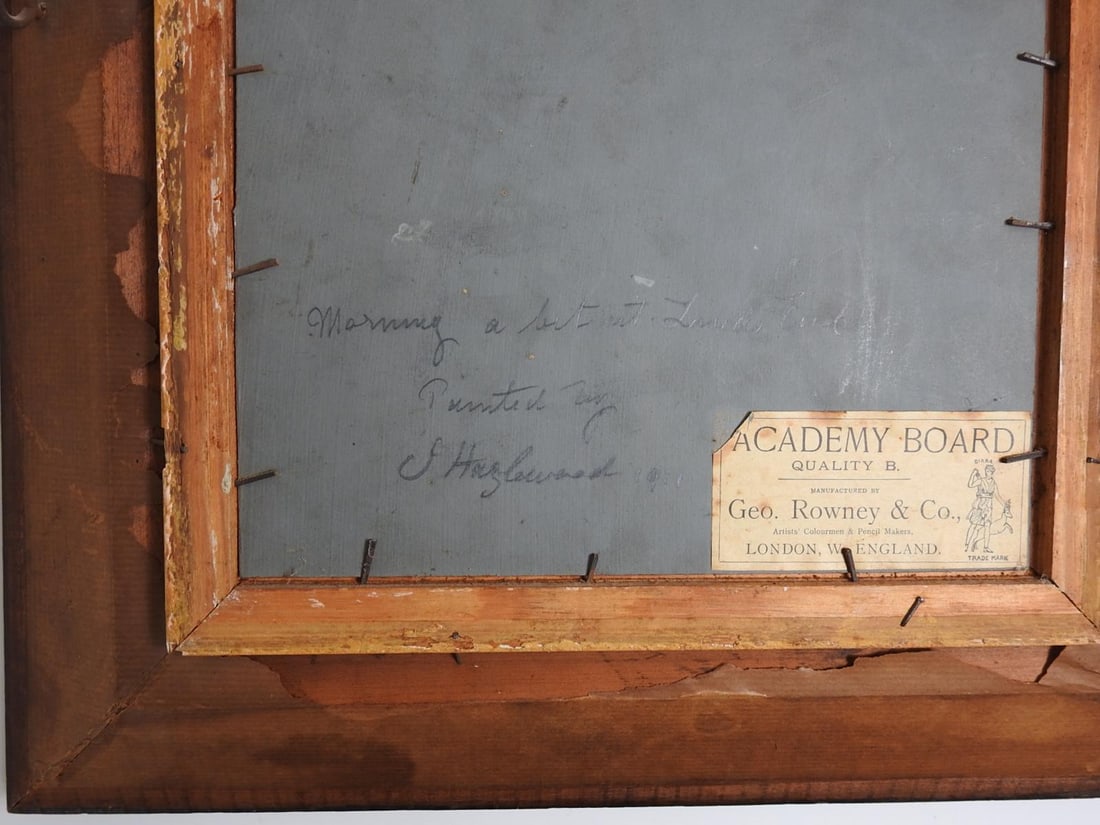 22
Morning a bit at
Painted by
J. Hazlewood
ACADEMY BOARD
QUALITY B.
MANUFACTURED BY
Geo. Rowney & Co.,
Artists' Colourmen & Pencil Makers,
LONDON, W. ENGLAND.
TRADE MARK